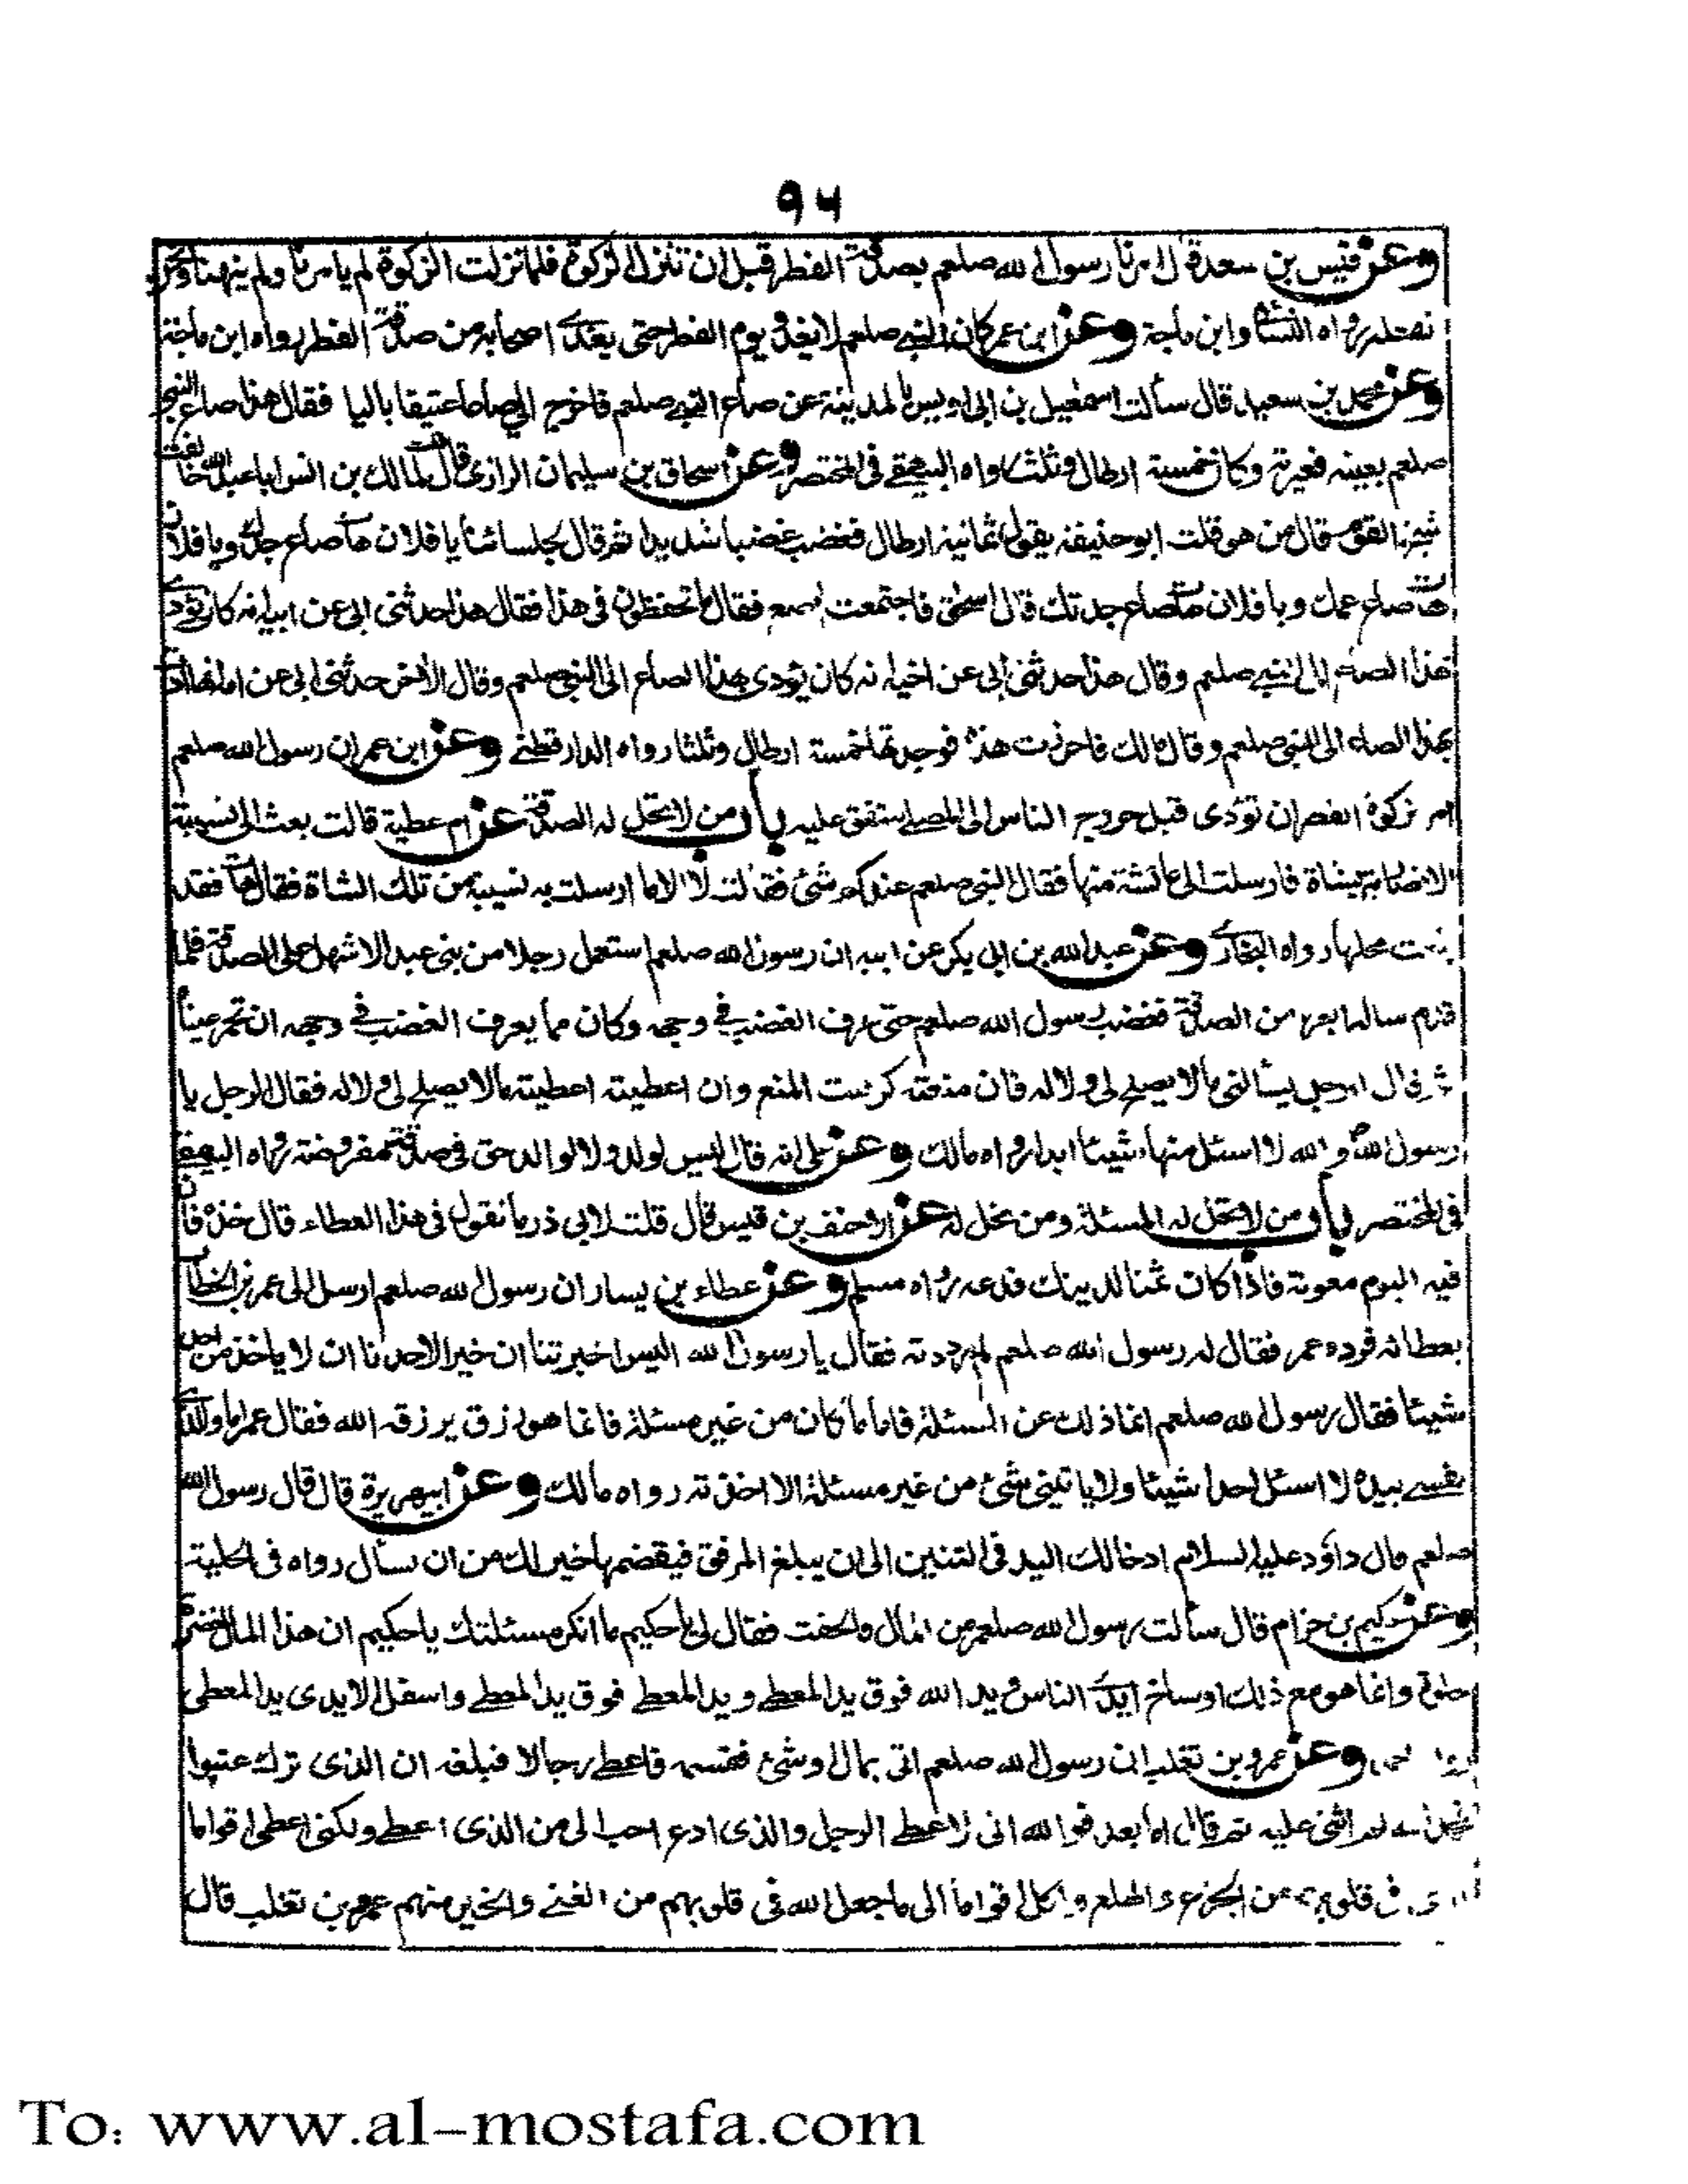 ٩٤
وعن قيس بن سعدة قال امرنا رسول الله صلعم بصدقة الفطر قبل ان تنزل الزكوة فلما نزلت الزكوة لم يامرنا ولم ينهنا ونحن
نفعله رواه النسائي وابن ماجة وعن ابن عمر كان النبي صلعم لا يغدو يوم الفطر حتى يغدي اصحابه من صدقة الفطر رواه ابن ماجة
وعن محمد بن سعيد قال سألت اسمعيل بن ابي اويس بالمدينة عن صاع النبي صلعم فاخرج الي صاعا عتيقا باليا فقال هذا صاع النبي
صلعم بعينه فعيرته وكان خمسة ارطال وثلثا رواه البيهقي في المختصر وعن اسحاق بن سليمان الرازي قال قلت لمالك بن انس اباعبدالله خالفت
شيخ القوم قال من هو قلت ابو حنيفة يقول ثمانية ارطال فغضب غضبا شديدا ثم قال لجلسائنا يا فلان هات صاع جدك ويا فلان
هات صاع عمك ويا فلان هات صاع جدتك قال اسحق فاجتمعت اصع فقال ما تحفظون في هذا فقال هذا حدثني ابي عن ابيه انه كان يؤدي
بهذا الصاع الى النبي صلعم وقال هذا حدثني ابي عن اخيه انه كان يؤدي بهذا الصاع الى النبي صلعم وقال الاخر حدثني ابي عن امه انها ادت
بهذا الصاع الى النبي صلعم وقال مالك فاحرزت هذه فوجدتها خمسة ارطال وثلثا رواه الدارقطني وعن ابن عمر ان رسول الله صلعم
امر بزكوة الفطر ان تؤدى قبل خروج الناس الى المصلى متفق عليه باب من لا تحل له الصدقة عن ام عطية قالت بعث الى نسيبة
الانصارية بشاة فارسلت الى عائشة منها فقال النبي صلعم عندكم شئ فقالت لا الا ما ارسلت به نسيبة من تلك الشاة فقال هات فقد
بلغت محلها رواه البخاري وعن عبد الله بن ابي بكر عن ابيه ان رسول الله صلعم استعمل رجلا من بني عبد الاشهل على الصدقة فلما
قدم ساله ابعرة من الصدقة فغضب رسول الله صلعم حتى عرف الغضب في وجهه وكان مما يعرف الغضب في وجهه ان تحمر عيناه
ثم قال الرجل يسألني ما لا يصلح لي ولا له فان منعته كرهت المنع وان اعطيته اعطيته ما لا يصلح لي ولا له فقال الرجل يا
رسول الله والله لا اسئل منها شيئا ابدا رواه مالك وعن علي انه قال ليس لولد ولا لوالد حق في صدقة مفروضة رواه البيهقي
في المختصر باب من لا تحل له المسئلة ومن تحل له عن الاحنف بن قيس قال قلت لابي ذر ما تقول في هذا العطاء قال خذه فان
فيه اليوم معونة فاذا كان ثمنا لدينك فدعه رواه مسلم وعن عطاء بن يسار ان رسول الله صلعم ارسل الى عمر بن الخطاب
بعطائه فرده عمر فقال له رسول الله صلعم لم رددته فقال يا رسول الله اليس اخبرتنا ان خيرا لاحدنا ان لا ياخذ من احد
شيئا فقال رسول الله صلعم انما ذلك عن المسئلة فاما ما كان من غير مسئلة فانما هو رزق يرزقه الله فقال عمر اما والذي
نفسي بيده لا اسئل احدا شيئا ولا ياتيني شئ من غير مسئلة الا اخذته رواه مالك وعن ابي هريرة قال قال رسول الله
صلعم قال داود عليه السلام ادخالك اليد في التنين الى ان يبلغ المرفق فيقضمها خير لك من ان تسأل رواه في الحلية
وعن حكيم بن حزام قال سألت رسول الله صلعم من المال والحفت فقال لي يا حكيم ما انكر مسئلتك يا حكيم ان هذا المال خضرة
حلوة وانما هو مع ذلك اوساخ ايدي الناس يد الله فوق يد المعطي ويد المعطي فوق يد المعطى واسفل الايدي يد المعطى
وعن عمرو بن تغلب ان رسول الله صلعم اتى بمال او شئ فقسمه فاعطى رجالا فبلغه ان الذي ترك عتبوا
فحمد الله ثم اثنى عليه ثم قال اما بعد فوالله اني لاعطي الرجل والذي ادع احب الي من الذي اعطي ولكني اعطي اقواما
في قلوبهم من الجزع والهلع واكل اقواما الى ما جعل الله في قلوبهم من الغنى والخير منهم عمرو بن تغلب قال
To: www.al-mostafa.com